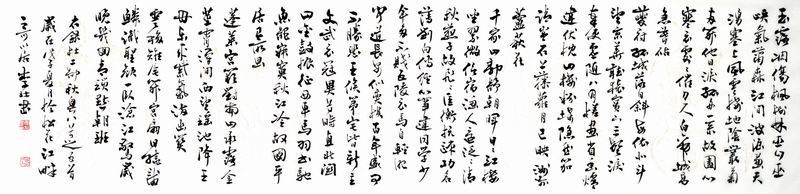 玉露凋傷楓樹林巫山巫
峽氣蕭森江間波浪兼天
湧塞上風雲接地陰叢菊
兩開他日淚孤舟一系故園心
寒衣處處催刀尺白帝城高
急暮砧
夔府孤城落日斜每依北斗
望京華聽猿實下三聲淚
奉使虛隨八月槎畫省香爐
違伏枕山樓粉堞隱悲笳
請看石上藤蘿月已映洲前
蘆荻花
千家山郭靜朝暉日日江樓
坐翠微信宿漁人還泛泛清
秋燕子故飛飛匡衡抗疏功名
薄劉向傳經心事違同學少
年多不賤五陵衣馬自輕肥
聞道長安似弈棋百年世事
不勝悲王侯第宅皆新主
文武衣冠異昔時直北關
山金鼓振征西車馬羽書馳
魚龍寂寞秋江冷故國平
居有所思
蓬萊宮闕對南山承露金
莖霄漢間西望瑤池降王
母東來紫氣滿函關
雲移雉尾開宮扇日繞龍
鱗識聖顏一臥滄江驚歲
晚幾回青瑣點朝班
右錄杜工部秋興八首之五首
歲在夏於江畔
李書